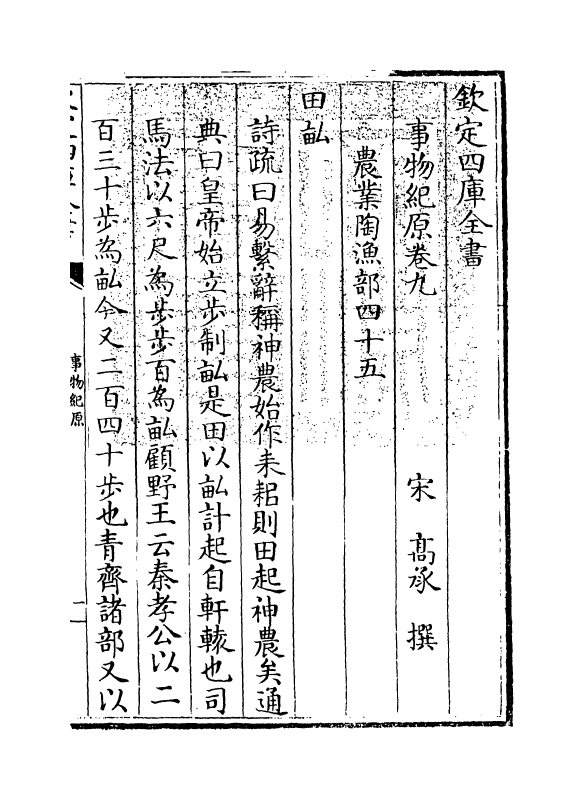 欽定四庫全書
事物紀原卷九
宋 髙承 撰
農業陶漁部四十五
田畝
詩疏曰易繫辭稱神農始作耒耜則田起神農矣通
典曰皇帝始立步制畝是田以畝計起自軒轅也司
馬法以六尺為步步百為畝顧野王云秦孝公以二
百三十步為畝今又二百四十步也青齊諸部又以
事物紀原